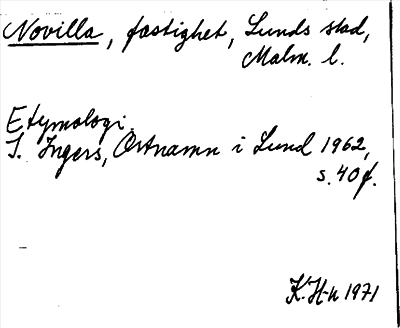 Novilla, fastighet, Lunds stad,
Malm. l.
Etymologi.
I. Ingers, Ortnamn i Lund 1962,
s. 40 f.
K. H-n 1971